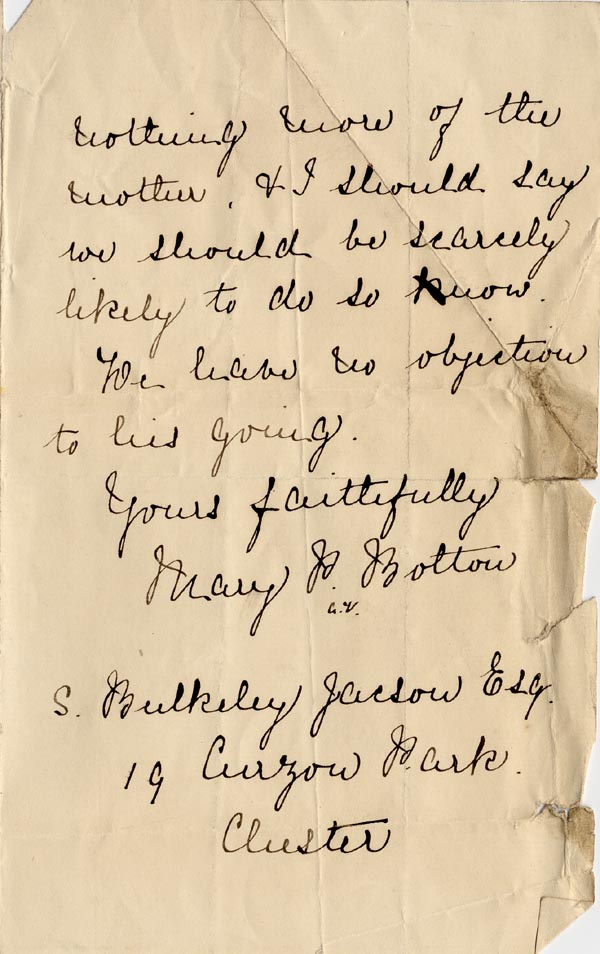 nothing more of the
mother, & I should say
we should be scarcely
likely to do so know.
We have no objection
to his going.
Yours faithfully
Mary P. Bolton
S. Bulkeley Jacson Esq.
19 Curzon Park.
Chester